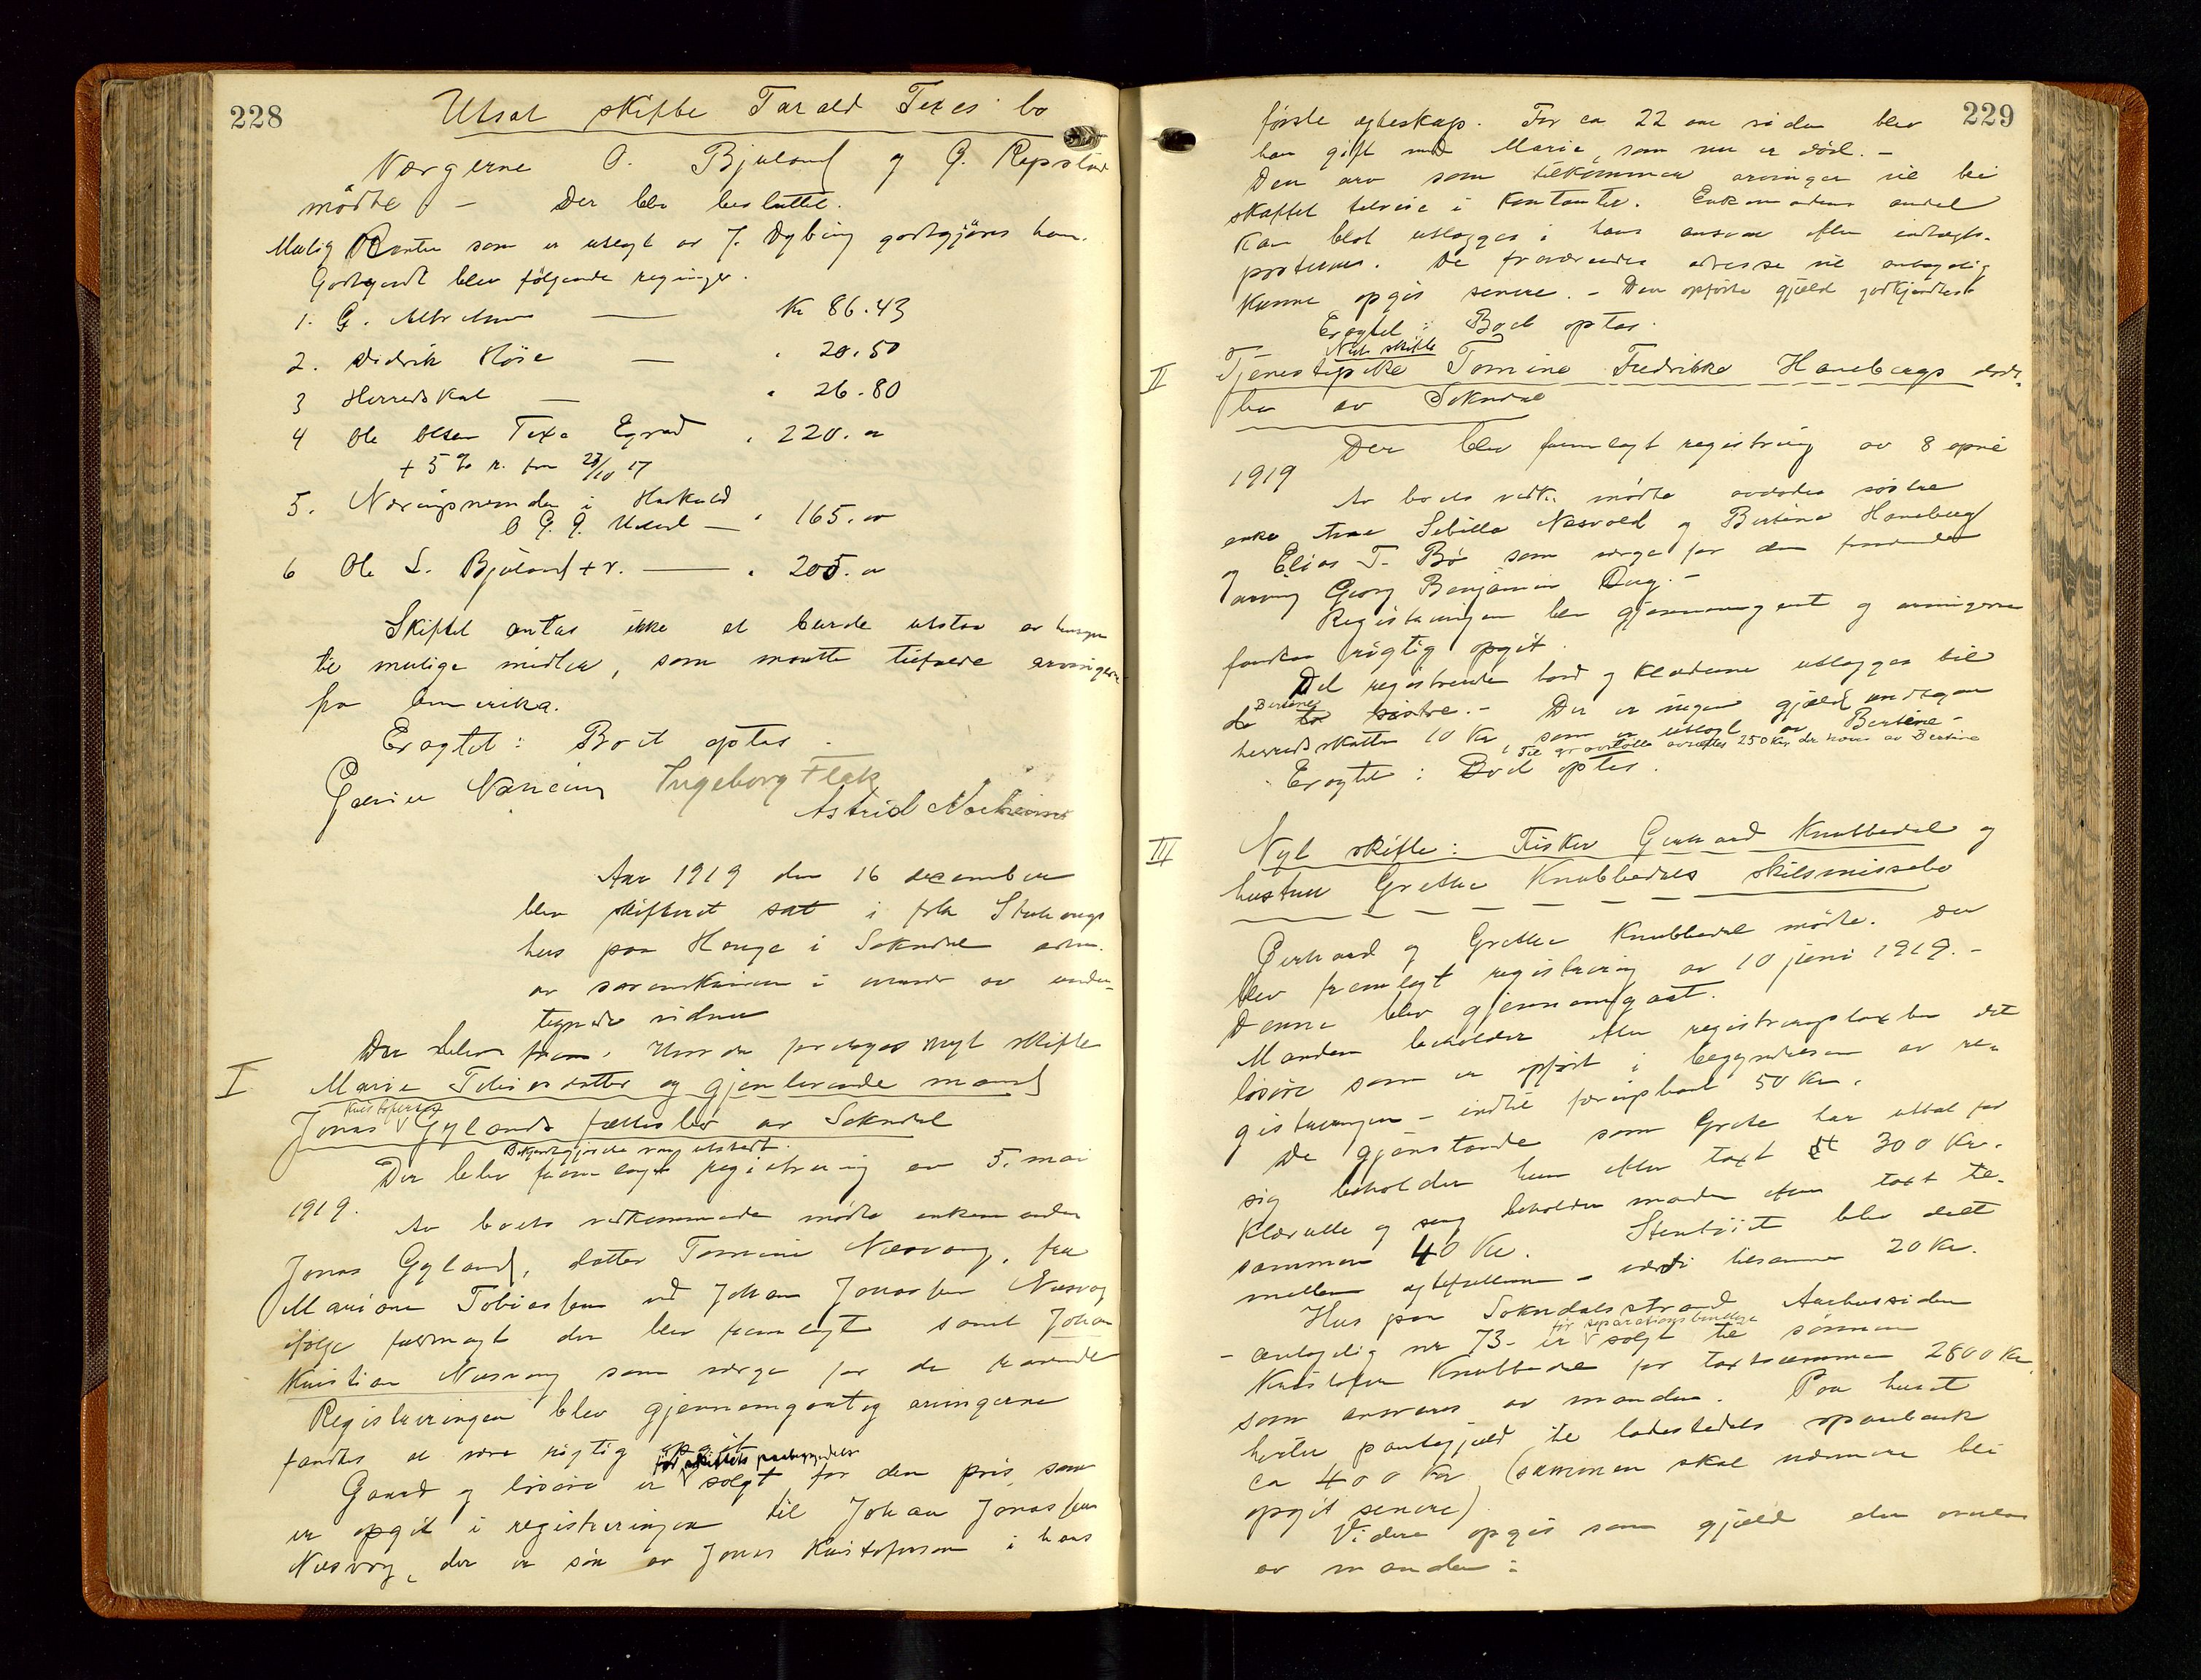 228
Utsat skifte Tarald Texes bo
Værgerne O. Bjuland og G. Repstad
mødte – Der blev besluttet.
Mulig Renter som er utlagt av J. Dybing godtgjøres ham.
Godkjendt blev følgende regninger.
1. G. — Kr 86.43
2. Didrik Høie — " 20.50
3 Herredskat — " 26.80
4 Ole Olsen Texe Egrad " 220.00
+ 5 % r. fra 23/10 17
5. Næringsnemden i
O G. G. — " 165.00
6 Ole L. Bjuland + r. — " 205.00
Skiftet antas ikke at burde utstaa av hensyn
til mulige midler, som maatte tilfalde arvingerne
fra Amerika.
Eragtet: Boet optas.
Ingeborg Flek
Astrid
Aar 1919 den 16 december
blev skifteret sat i frk
hus paa Hauge i Sokndal adm.
av sorenskriveren i overvær av under-
tegnede vidner
Der blev frem. Hvor da foretages nyt skifte
I Marie Tobiasdatter og gjenlevende mand
Kristofersen
Jonas Gylands fællesbo av Sokndal
Bekjendtgjørelse var utstedt.
Der blev fremlagt registrering av 5. mai
1919.
Av boets vedkommende mødte enkemanden
Jonas Gyland, datter Tomine Nesvaag, fru
Mariane Tobiassen ved Johan Jonassen Nesvog
ifølge fuldmagt der blev fremlagt samt Johan
Kristian Nesvaag som værge for de fraværende
Registreringen blev gjennemgaat og arvingerne
fandtes at være rigtig opgit
før skiftets paabegyndelse
Gaard og løsøre er solgt for den pris som
er opgit i registreringen til Johan Jonassen
Nesvog, der er søn av Jonas Kristofersen i hans
229
første egteskap. For ca 22 aar siden blev
han gift med Marie, som nu er død. –
Den arv som tilkommer arvinger vil bli
skaffet tilveie i kontanter. Enkemandens andel
kan blot utlægges i hans ansvar efter indtægts-
posterne. De fraværendes adresse vil antagelig
kunne opgis senere. – Den opførte gjæld godkjendtes
Eragtet: Boet optas.
Nyt skifte
II Tjenestepike Tomine Fredrikke Hanebergs døds-
bo av Sokndal
Der blev fremlagt registrering av 8 april
1919
Av boets vedk. mødte avdødes søstre
enke Sibille Nesvold og Bertine Haneberg
og Elias T. Bø som værge for den fraværende
arving Georg Benjamin
Registreringen blev gjennemgaat og arvingerne
fandtes rigtig opgit.
Det registrerede bord og klæderne utlægges til
Bertine
de to søstre. – Der er ingen gjæld undtagen
herredsskatten 10 Kr, som er utlagt av Bertine –
Til gravstøtte avsættes 250 Kr. der haves av Bertine
Eragtet: Boet optas.
III Nyt skifte: Fisker Gerhard Knubbedal og
hustru Grethe Knubbedals skilsmissebo
Gerhard og Grethe Knubbedal mødte. Der
blev fremlagt registrering av 10 juni 1919. –
Denne blev gjennemgaat.
Manden beholder efter registreringstaxten det
løsøre som er opført i begyndelsen av re-
gistreringen – indtil færingsbaat 50 Kr.
De gjenstande som Grete har uttat for
sig beholder hun efter taxt 300 Kr.
Klærulle og seng beholder manden efter taxt til-
sammen 40 Kr. Stentøiet blev delt
mellem egtefællerne – værdi tilsammen 20 Kr.
Hus paa Sokndalsstrand Aarhussiden
før separationsbevilling
– antagelig nr 73 – er solgt til sønnen
Kristofer Knubbedal for taxtsummen 2800 Kr
som ansvares av manden. Paa huset
hefter pantegjæld til ladestedets sparebank
ca 400 Kr (summen skal nærmere bli
opgit senere).
Videre opgis som gjæld der
av manden: